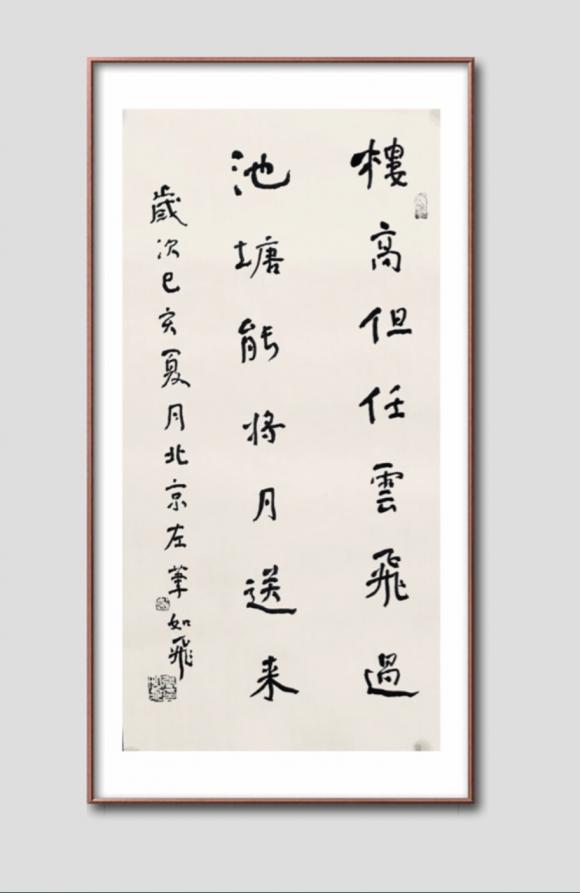 樓高但任雲飛過
池塘能将月送来
歲次己亥夏月北京左筆如飛